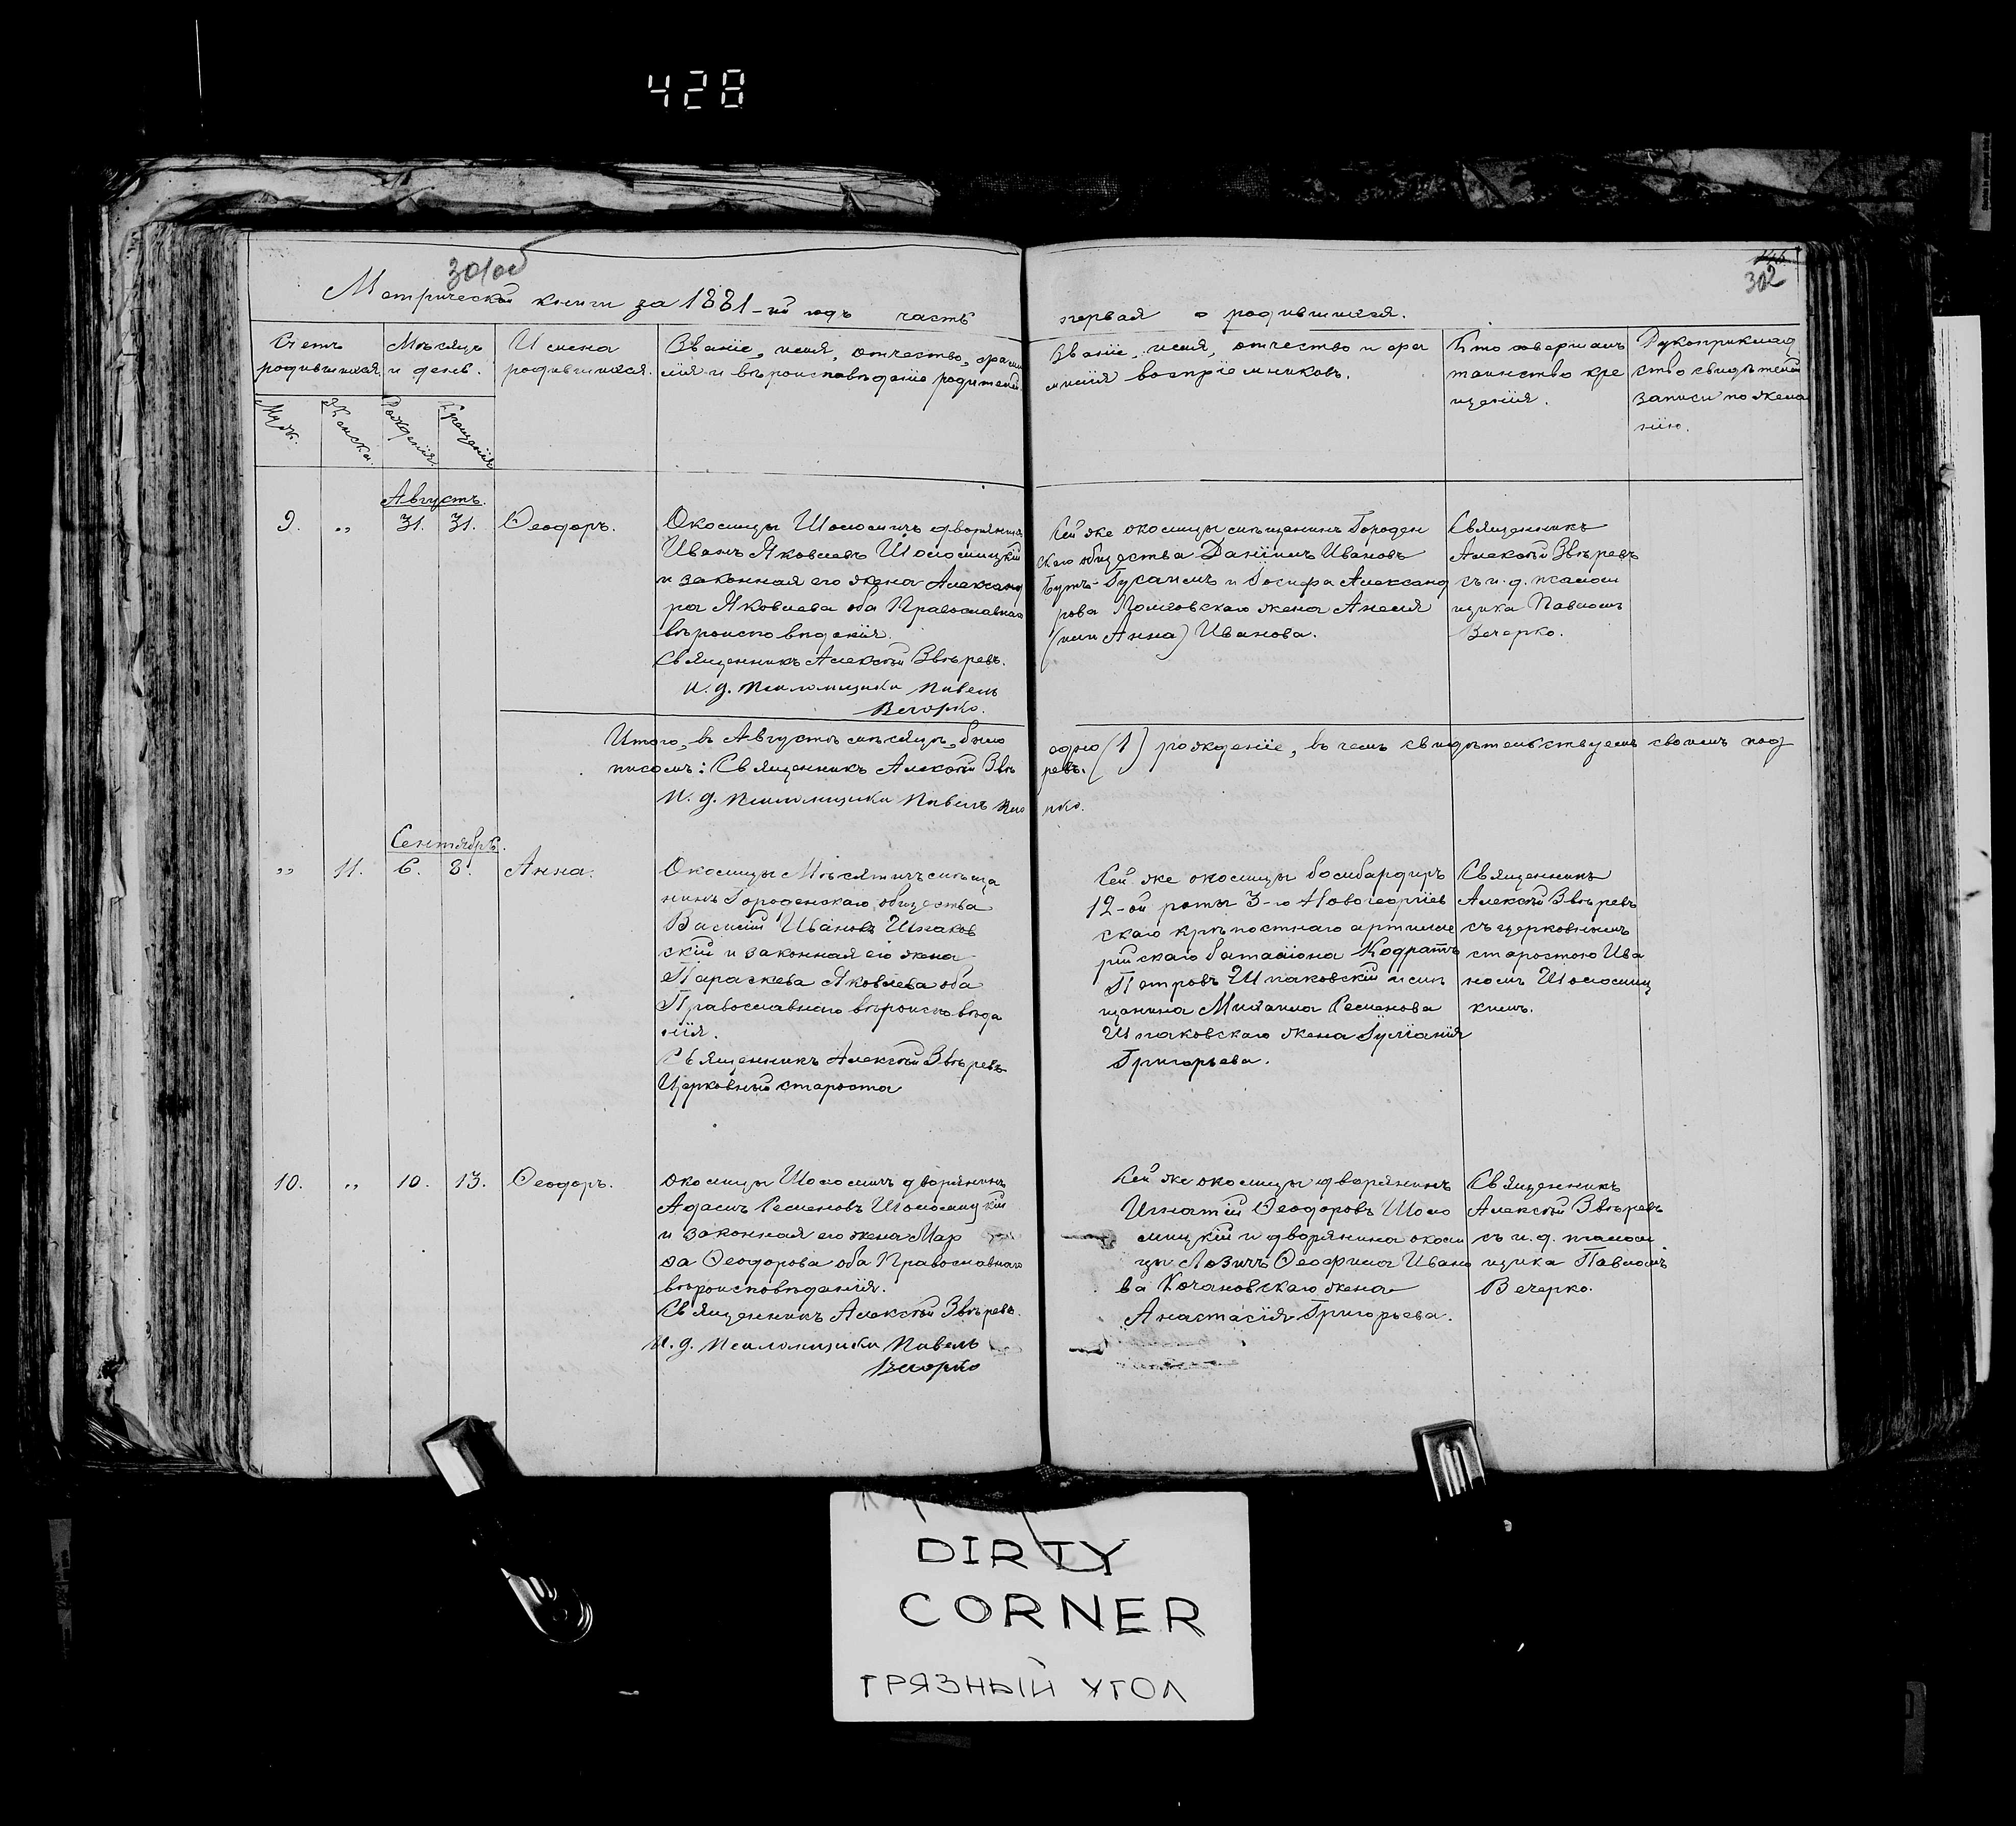 428
301об
302
Метрической книги за 1881-й годъ часть
первая о родившихся.
Счетъ
родившихся.
Мѣсяцъ
и день.
Имена
родившихся.
Званіе, имя, отчество, фами
лія и вѣроисповѣданіе родителей
Званіе, имя, отчество и фа
милія воспріемниковъ.
Кто совершалъ
таинство кре
щенія.
Рукоприклад
ство свидѣтелей
записи по жела
нію.
Муж.
Женска.
Рожденія
Крещенія
Августъ.
9. „ 31. 31. Ѳеодоръ.
Околицы Шоломичъ дворянинъ
Иванъ Яковлевъ Шоломицкій
и законная его жена Александ
ра Яковлева оба Православнаго
вѣроисповѣданія.
Священникъ Алексѣй Звѣревъ.
И. д. псаломщика Павелъ
Вечорко.
Сей же околицы мѣщанинъ Городен
скаго общества Даніилъ Ивановъ
Бутъ-Гусаимъ и Іосифа Александ
рова жена Анеля
(или Анна) Иванова.
Священникъ
Алексѣй Звѣревъ
съ и. д. псалом
щика Павломъ
Вечерко.
Итого, въ Августѣ мѣсяцѣ, было
одно (1) рожденіе, въ чемъ свидѣтельствуемъ своимъ под
писомъ: Священникъ Алексѣй Звѣ
ревъ.
И. д. псаломщика Павелъ Вечо
рко.
Сентябрь.
„ 11. 6. 8. Анна.
Околицы Мѣсятичъ мѣща
нинъ Городенскаго общества
Василій Ивановъ Шпаков
скій и законная его жена
Параскева Яковлева оба
Православнаго вѣроисповѣда
нія.
Священникъ Алексѣй Звѣревъ
Церковный староста
Сей же околицы бомбардиръ
12-ой роты 3-го Новогеоргіев
скаго крѣпостнаго артилле
рійскаго баталіона Кодратъ
Петровъ Шпаковскій и мѣ
щанина Михаила Семенова
Шпаковскаго жена Іуліанія
Григорьева.
Священникъ
Алексѣй Звѣревъ
съ церковнымъ
старостою Ива
номъ Шоломиц
кимъ.
10. „ 10. 13. Ѳеодоръ.
Околицы Шоломичъ дворянинъ
Адамъ Семеновъ Шоломицкій
и законная его жена Мар
ѳа Ѳеодорова оба Православнаго
вѣроисповѣданія.
Священникъ Алексѣй Звѣревъ.
И. д. псаломщика Павелъ
Вечорко
Сей же околицы дворянинъ
Игнатій Ѳеодоровъ Шоло
мицкій и дворянина околи
цы Лозичъ Ѳеофила Ивано
ва Кочановскаго жена
Анастасія Григорьева.
Священникъ
Алексѣй Звѣревъ
съ и. д. псалом
щика Павломъ
Вечерко.
DIRTY
CORNER
ГРЯЗНЫЙ УГОЛ